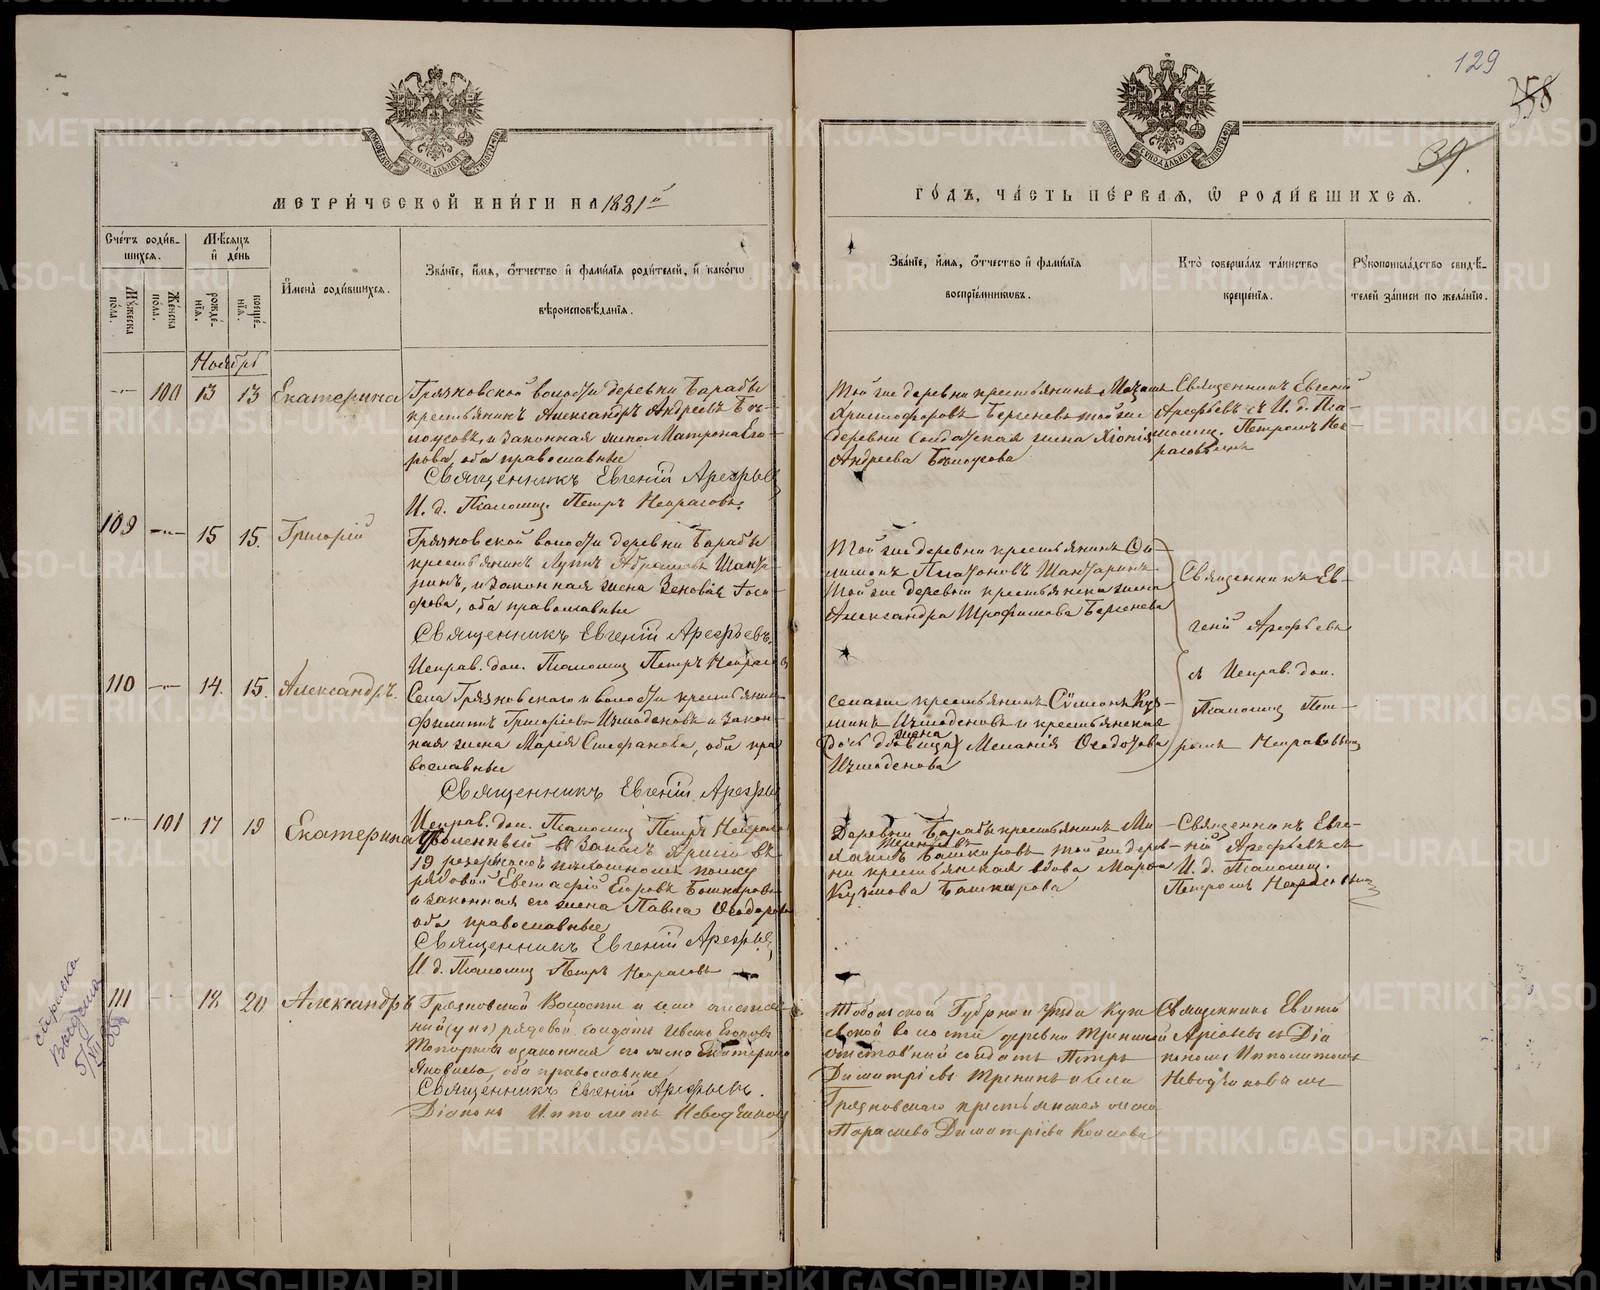 129
358
39.
МОСКОВСКОЙ СѴНОДАЛЬНОЙ ТИПОГРАФІИ
МОСКОВСКОЙ СѴНОДАЛЬНОЙ ТИПОГРАФІИ
МЕТРИ́ЧЕСКОЙ КНИ́ГИ НА 1881й
ГО́ДЪ, ЧА́СТЬ ПЕ́РВАЯ, Ѡ РОДИ́ВШИХСЯ.
Сче́тъ роди́в-
шихся.
Му́жеска
по́ла.
Же́нска
по́ла.
Мѣ́сяцъ
и де́нь
рожде́-
нїя.
креще́-
нїя.
И́мена̀ роди́вшихся.
Зва́нїе, и́мя, о́тчество и фами́лїя роди́телей, и како́гѡ
вѣроисповѣ́данїя.
Зва́нїе, и́мя, о́тчество и фами́лїя
воспрїе́мникѡвъ.
Кто̀ соверша́лъ та́инство
креще́нїя.
Рꙋкоприкла́дство свидѣ́-
телей за́писи по жела́нїю.
Ноябрь
100 13 13 Екатерина
Грязновской волости деревни Барабы
крестьянинъ Александръ Андреевъ Бѣ-
лоусовъ, и законная жена Матрона Его-
рова, оба православные
Священникъ Евгеній Арефьевъ
И. д. Псаломщ. Петръ Некрасовъ.
Той же деревни крестьянинъ
Христофоровъ Берсеневъ той же
деревни Солдатская жена Хіонія
Андреева Бѣлоусова
Священникъ Евгеній
Арефьевъ съ И. д. Пса-
ломщ. Петромъ Нек-
расовымъ
109 15 15. Григорій
Грязновской волости деревни Барабы
крестьянинъ Луппъ Абрамовъ Шанта-
ринъ, и законная жена Зеновія Іоси-
фова, оба православные
Священникъ Евгеній Арефьевъ.
Исправ. дол. Псаломщ Петръ Некрасовъ
Той же деревни крестьянинъ Фи-
лимонъ Платоновъ Шантаринъ
Той же деревни крестьянска жена
Александра Трофимова Берсенева
Священникъ Ев-
геній Арефьевъ
съ Исправ. дол.
Псаломщ Пет-
ромъ Некрасовымъ
110 14. 15. Александръ.
Села Грязновскаго и волости крестьянинъ
Филиппъ Григорьевъ Измоденовъ и закон-
ная жена Марія Стефанова, оба пра
вославные
Священникъ Евгеній Арефьевъ
Исправ. дол. Псаломщ Петръ Некрасовъ
села же крестьянинъ Сѵмеонъ Кузь-
минъ Измоденовъ и крестьянская
жена
дочь дѣвица Меланія Ѳеодотова
Измоденова
101 17 19 Екатерина
Уволенный въ запасъ Арміи въ
19 резервномъ пѣхотномъ полку
рядовой Евстафій Егоровъ Башкировъ
и законная его жена Павла Ѳеодорова
оба православные
Священникъ Евгеній Арефьевъ
И д. Псаломщ Петръ Некрасовъ
Деревни Барабы крестьянинъ Ми
хаилъ Башкировъ той же дерев-
ни крестьянская вдова Марѳа
Кузмова Башкирова
Священникъ Евге-
ній Арефьевъ съ
И. д. Псаломщ.
Петромъ Некрасовымъ
111 18 20 Александръ
Грязновской Волости и села отстав-
ный рядовой солдатъ Иванъ Егоровъ
Топорковъ и законная его жена Екатерина
Яковлева, оба православные
Священникъ Евгеній Арефьевъ.
Діаконъ Ипполитъ Неводчиковъ
Тобольской Губерніи и уѣзда
волости деревни
отставный солдатъ Петръ
Димитріевъ и села
Грязновскаго крестьянская жена
Параскева Димитріева
Священникъ Евгеній
Арефьевъ съ Діа
кономъ Ипполитомъ
Неводчиковымъ
справка
METRIKI.GASO-URAL.RU